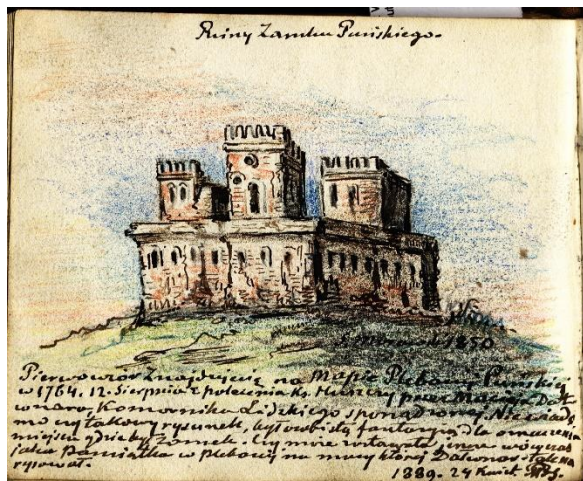 Ruiny Zamku Puńskiego.
1850
Pierwowzór Znajduje się na Mapie Plebanii Puńskiej
w 1764. 12. Sierpnia z polecenia Ks. przez Macieja Dot
wnara, Komornika Lidzkiego sporządzonej. Nie wiado
mo czy takowy rysunek, był osobistą fantazyą dla oznaczenia
miejsca gdzie był Zamek. Czy może w owych czas
jako pamiątka w plebanii, na mocy której Dotwnar
rysował.
1889. 24 Kwiet.